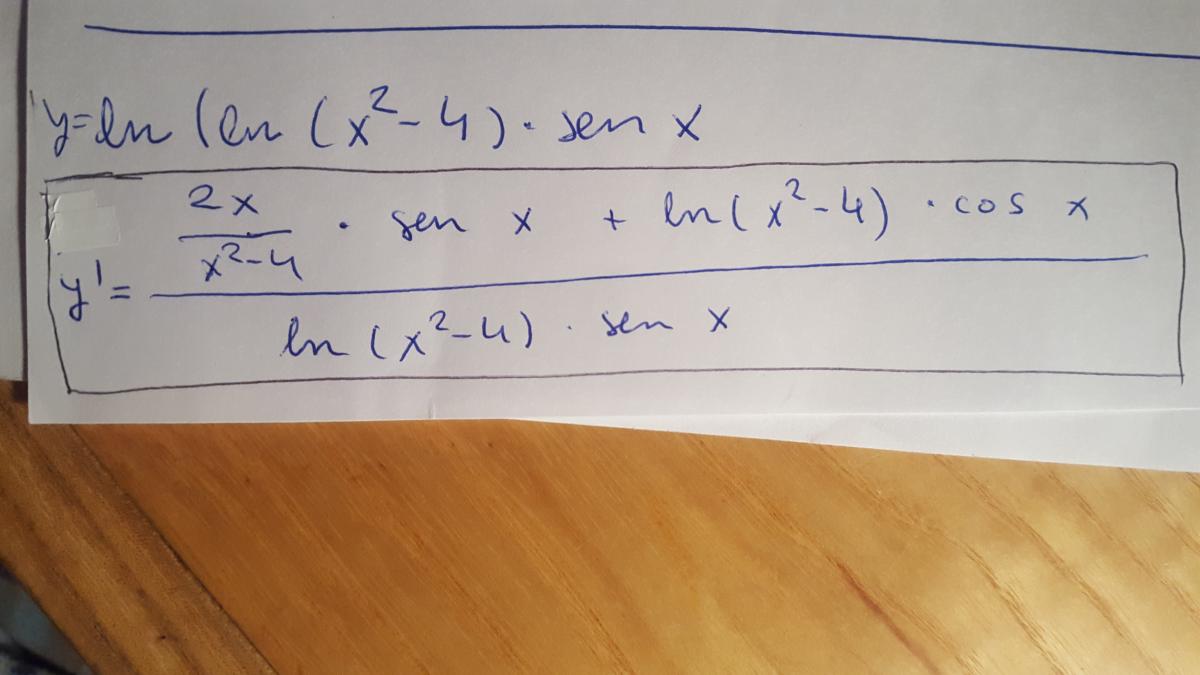 y=ln (ln (x²-4) · sen x
y' = \frac{\frac{2x}{x²-4} · sen x + ln(x²-4) · cos x}{ln (x²-4) · sen x}